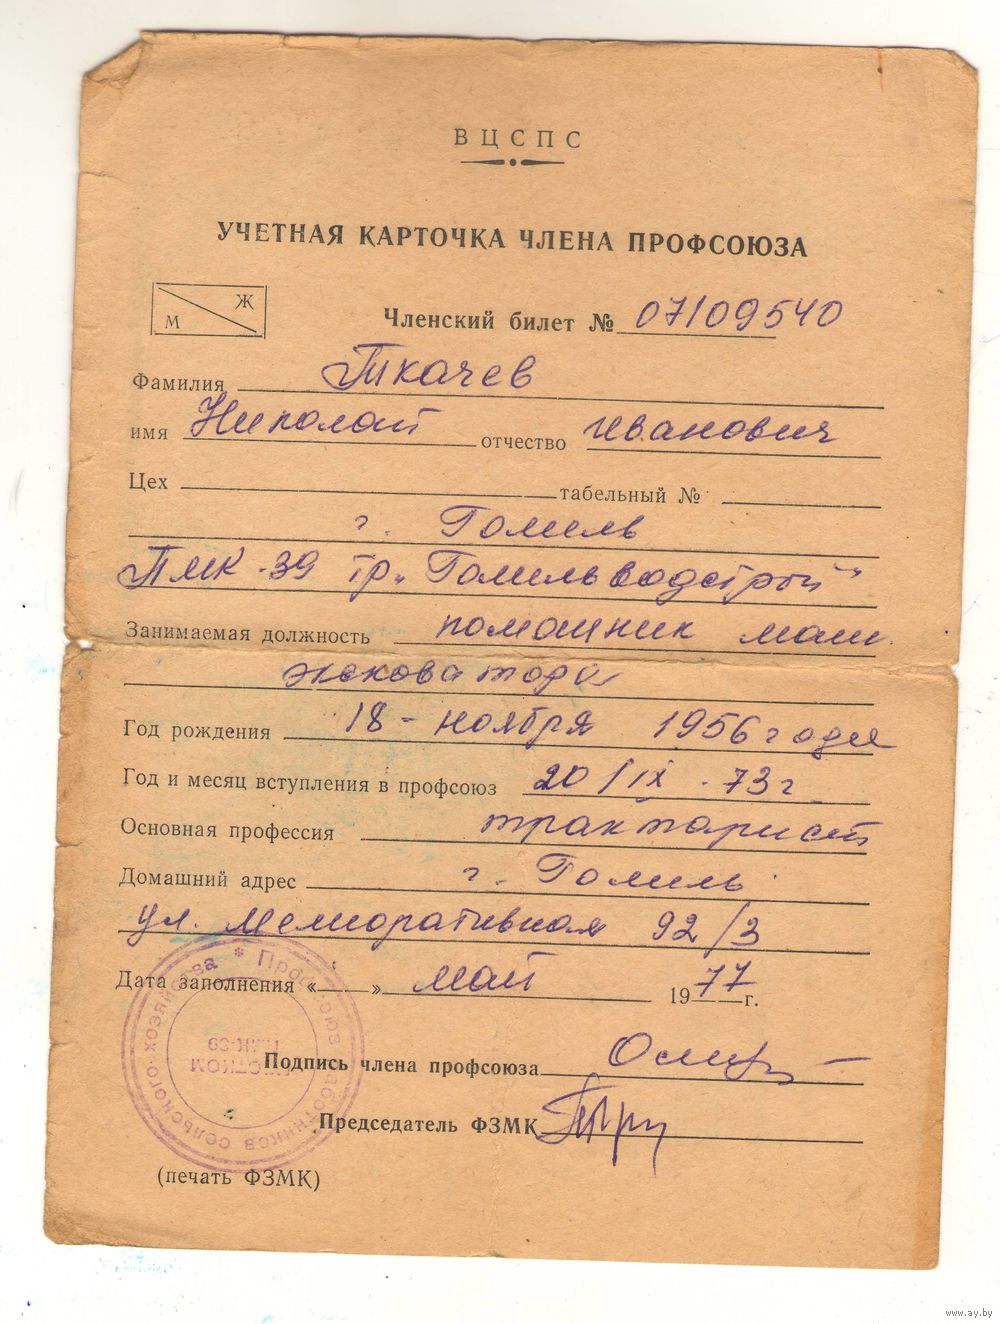 ВЦСПС
УЧЕТНАЯ КАРТОЧКА ЧЛЕНА ПРОФСОЮЗА
Ж
М
Членский билет № 07/09540
Фамилия Ткачев
имя Николай отчество Иванович
Цех табельный №
г. Гомель
ПМК-39 тр. "Гомельводстрой"
Занимаемая должность помошник маш.
экскаватора
Год рождения 18 - ноября 1956 года
Год и месяц вступления в профсоюз 20/IX-73 г
Основная профессия тракторист
Домашний адрес г. Гомель
ул. Мелиоративная 92/3
Дата заполнения « » май 1977 г.
Подпись члена профсоюза
Председатель ФЗМК
(печать ФЗМК)
* Профсоюз работников сельского хозяйства
МЕСТКОМ
ПМК-39
www.ay.by